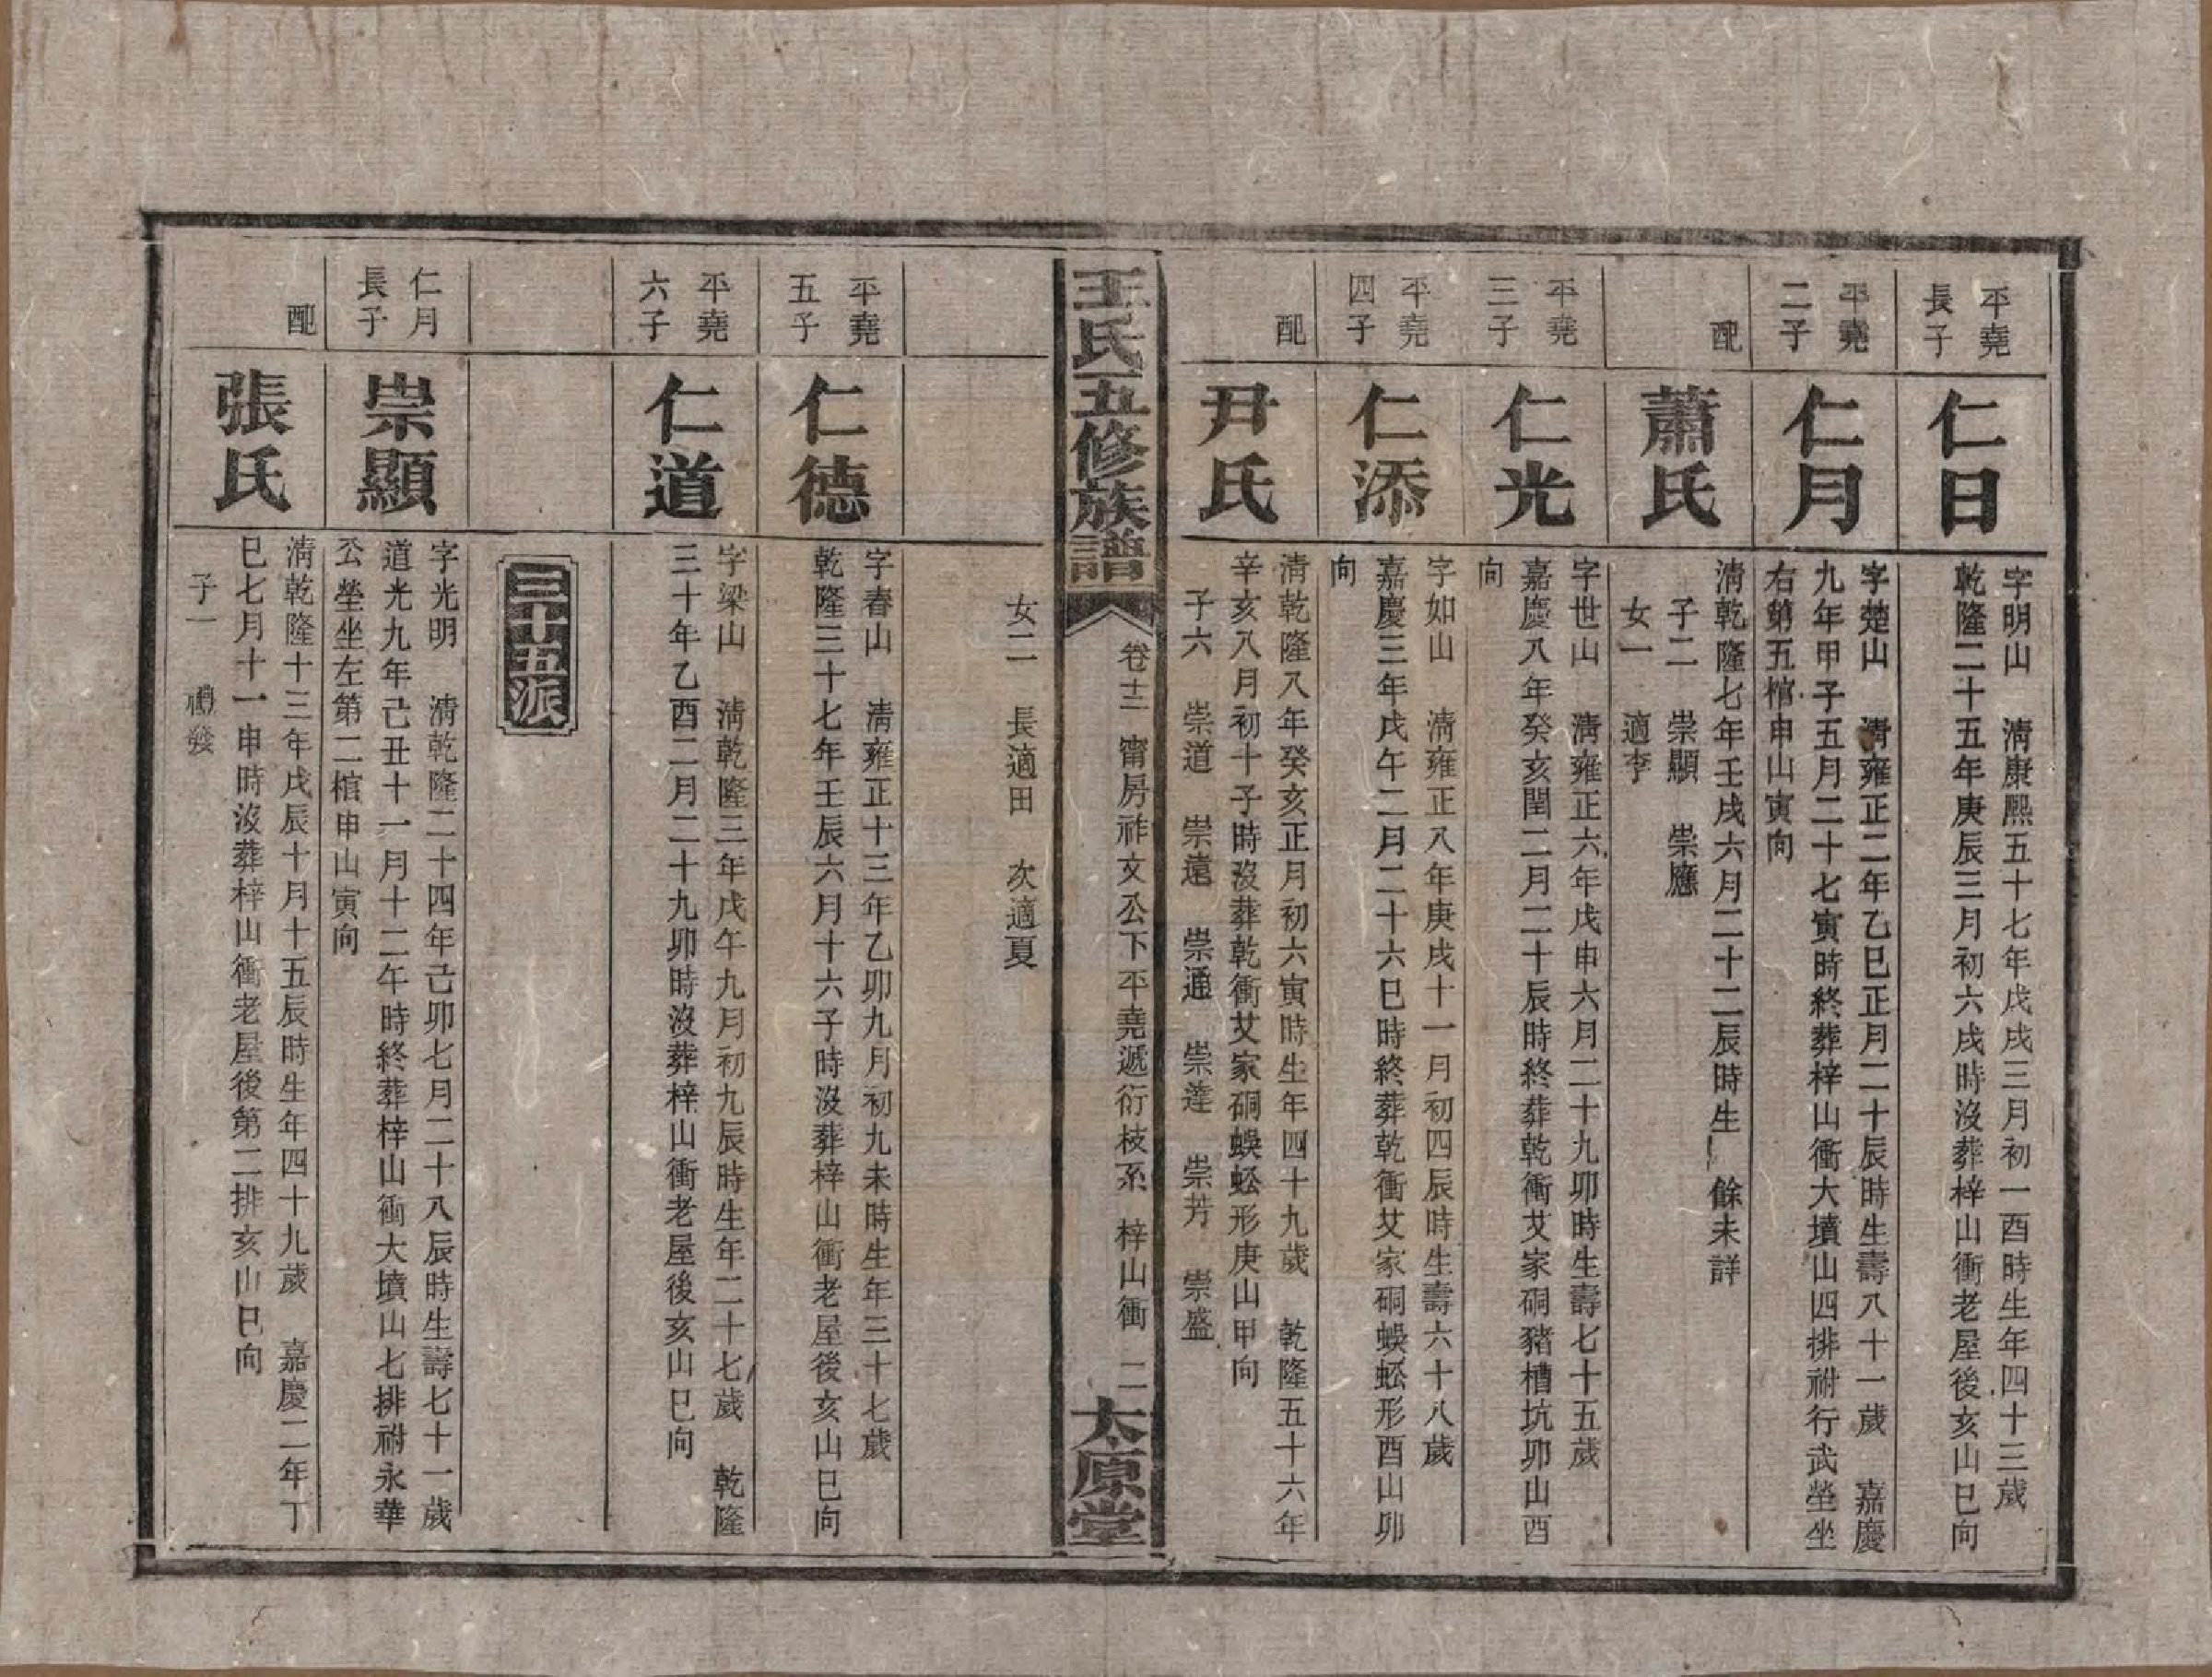 平堯
長子
仁日
字明山　淸康熙五十七年戊戌三月初一酉時生年四十三歲
乾隆二十五年庚辰三月初六戌時沒葬梓山衝老屋後亥山巳向
平堯
二子
仁月
字楚山　淸雍正二年乙巳正月二十辰時生壽八十一歲　嘉慶
九年甲子五月二十七寅時終葬梓山衝大墳山四排祔行武塋坐
右第五棺申山寅向
配
蕭氏
淸乾隆七年壬戌六月二十二辰時生　餘未詳
子二　崇顯　崇應
女一　適李
平堯
三子
仁光
字世山　淸雍正六年戊申六月二十九卯時生壽七十五歲
嘉慶八年癸亥閏二月二十辰時終葬乾衝艾家硐豬槽坑卯山酉
向
平堯
四子
仁添
字如山　淸雍正八年庚戌十一月初四辰時生壽六十八歲
嘉慶三年戊午二月二十六巳時終葬乾衝艾家硐蜈蚣形酉山卯
向
配
尹氏
淸乾隆八年癸亥正月初六寅時生年四十九歲　乾隆五十六年
辛亥八月初十子時沒葬乾衝艾家硐蜈蚣形庚山甲向
子六　崇道　崇遠　崇通　崇達　崇芳　崇盛
王氏五修族譜
卷十二　甯房祚文公下平堯遞衍枝系　梓山衝　二
太原堂
女二　長適田　次適夏
平堯
五子
仁德
字春山　淸雍正十三年乙卯九月初九未時生年三十七歲
乾隆三十七年壬辰六月十六子時沒葬梓山衝老屋後亥山巳向
平堯
六子
仁道
字梁山　淸乾隆三年戊午九月初九辰時生年二十七歲　乾隆
三十年乙酉二月二十九卯時沒葬梓山衝老屋後亥山巳向
三十五派
仁月
長子
崇顯
字光明　淸乾隆二十四年己卯七月二十八辰時生壽七十一歲
道光九年己丑十一月十二午時終葬梓山衝大墳山七排祔永華
公塋坐左第二棺申山寅向
配
張氏
淸乾隆十三年戊辰十月十五辰時生年四十九歲　嘉慶二年丁
巳七月十一申時沒葬梓山衝老屋後第二排亥山巳向
子一　禮發